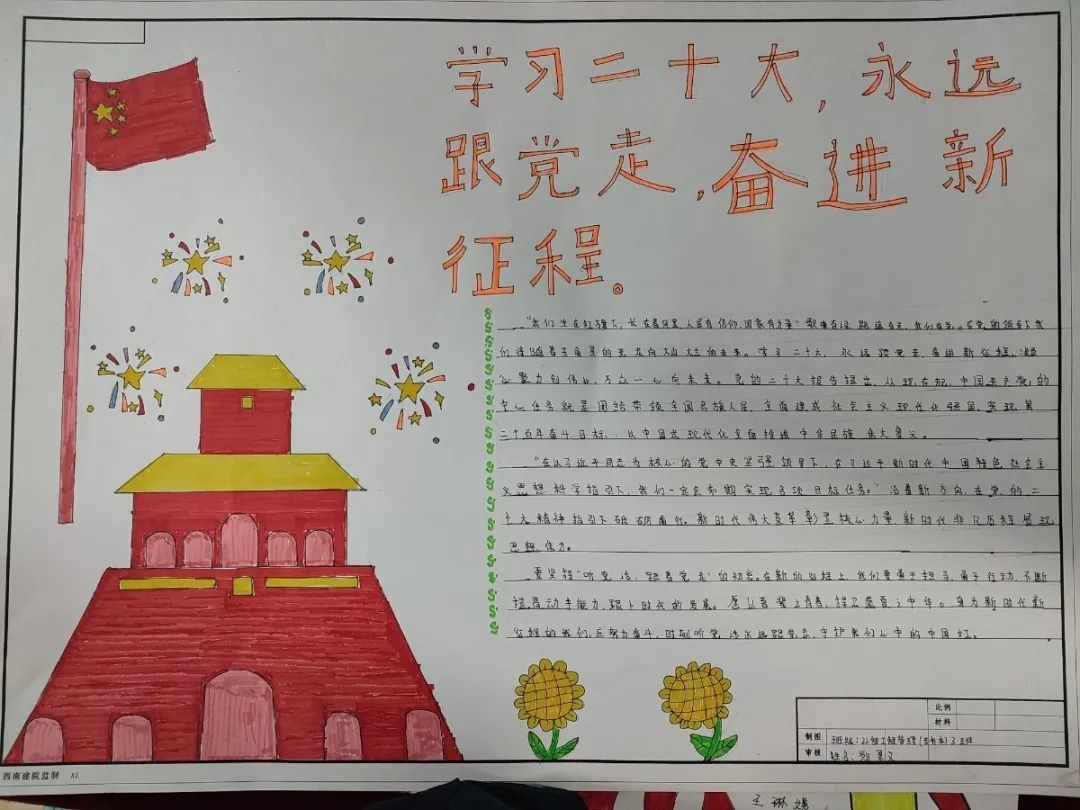 学习二十大,永远
跟党走,奋进新
征程。
"我们生在红旗下,长在春风里,人民有信仰,国家有力量"歌曲有词,跟
们 着五角星的光走向灿烂的未来。学习二十大,永远跟党走,奋进新征程。
心聚力创伟业,万众一心向未来。党的二十大报告提出,从现在起,中国共产党的
中心任务就是团结带领全国各族人民,全面建成社会主义现代化强国、实现第
二个百年奋斗目标,以中国式现代化全面推进中华民族伟大复兴。
"在以习近平同志为核心的党中央坚强领导下,在习近平新时代中国特色社会主
义思想科学指引下,我们一定会如期实现各项目标任务。"沿着新方向,在党的二
十大精神指引下砥砺前行。新时代伟大变革彰显核心力量,新时代非凡历程展现
思想伟力。
要坚持"听党话,跟着党走"的初心。在新的征程上,我们要勇于担当,勇于行动,不断
提高动手能力,跟上时代的发展。愿以吾辈之青春,捍卫盛夏之中华。身为新时代新
征程的我们,应努力奋斗,时刻听党话永远跟党走,守护我们心中的中国红。
比例
材料
制图 班级:22级工程管理(专升本)3班
审核 姓名:
西南建院监制 A2
王琳